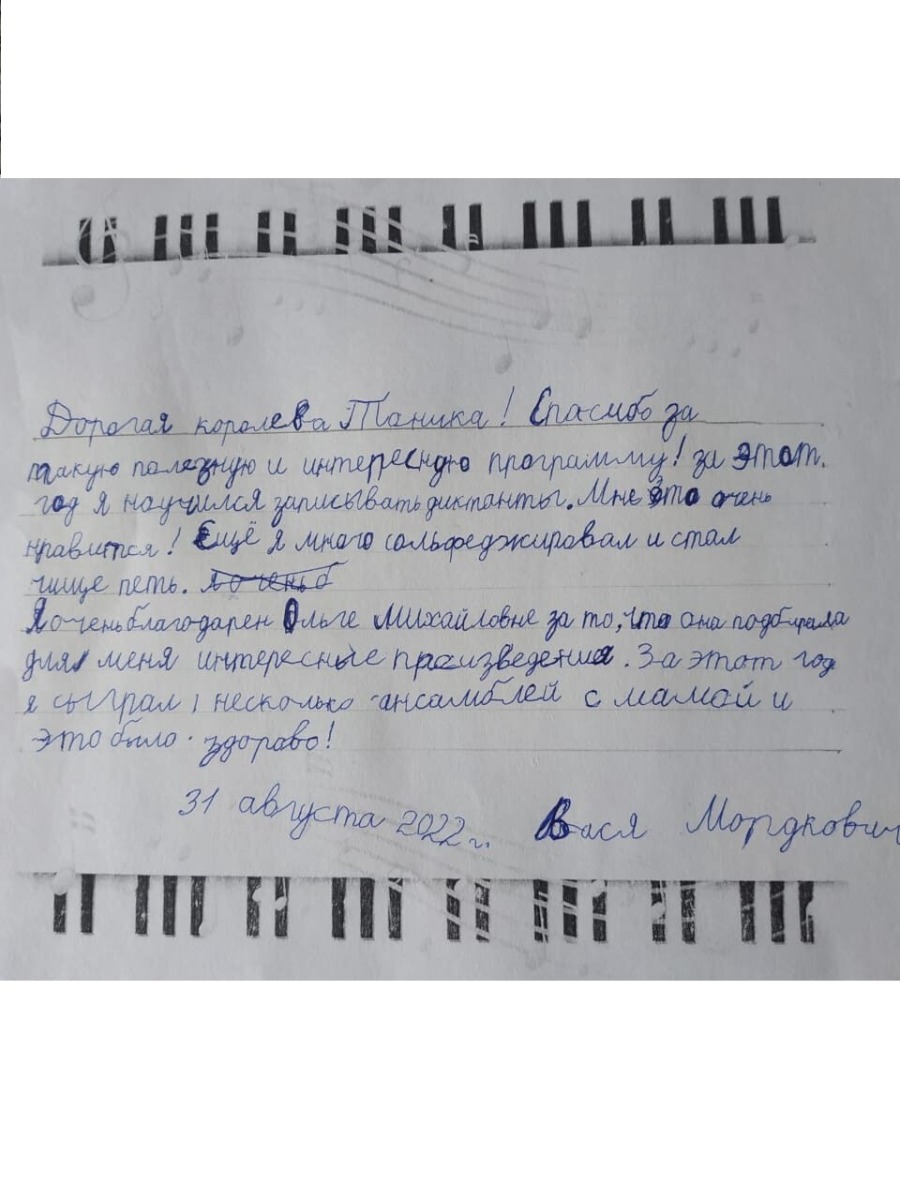 Дорогая королева Таника! Спасибо за
такую полезную и интересную программу! за этот.
год я научился записывать диктанты. Мне это очень
нравится! Ещё я много сольфеджировал и стал
чище петь. я очень б
Я очень благодарен Ольге Михайловне за то, что она подбирала
для меня интересные произведения. За этот год
я сыграл несколько ансамблей с мамой и
это было здорово!
31 августа 2022 г. Вася Мордкович